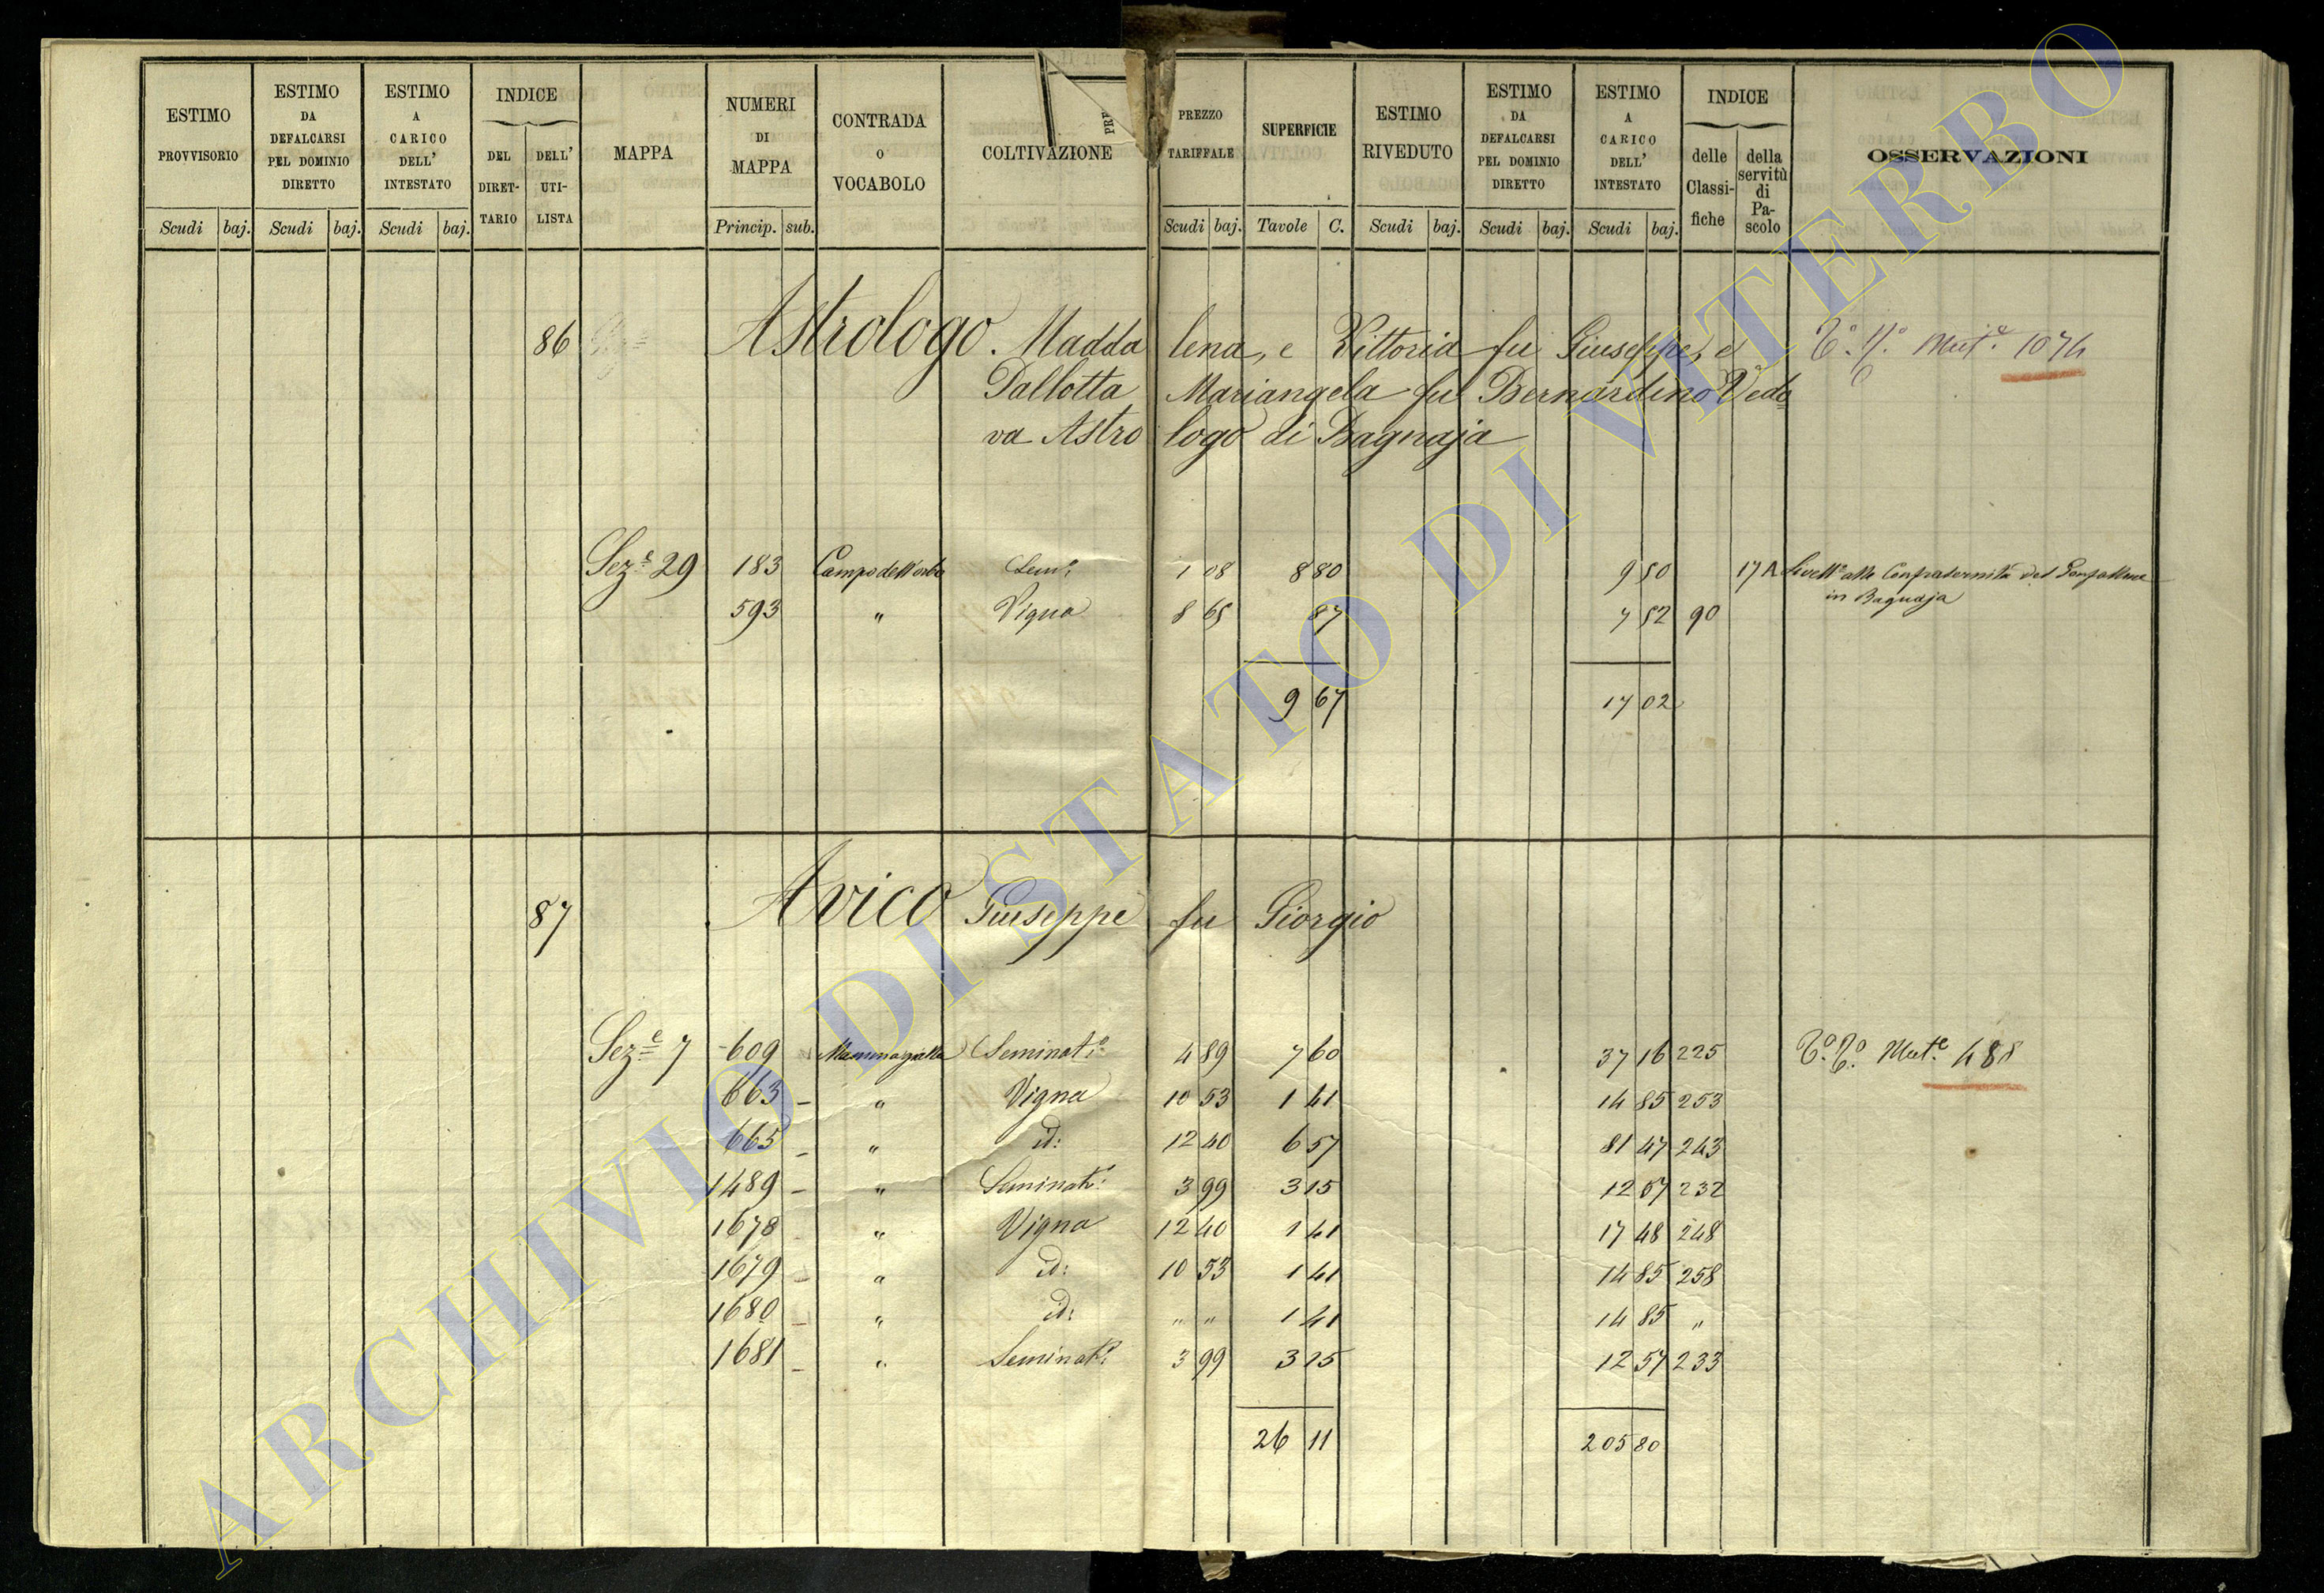 ESTIMO PROVVISORIO Scudi baj.
ESTIMO DA DEFALCARSI PEL DOMINIO DIRETTO Scudi baj.
ESTIMO A CARICO DELL' INTESTATO Scudi baj.
INDICE DEL DIRETTARIO DELL' UTILISTA
MAPPA
NUMERI DI MAPPA Princip. sub.
CONTRADA O VOCABOLO
COLTIVAZIONE
PREZZO TARIFFALE Scudi baj.
SUPERFICIE Tavole C.
ESTIMO RIVEDUTO Scudi baj.
ESTIMO DA DEFALCARSI PEL DOMINIO DIRETTO Scudi baj.
ESTIMO A CARICO DELL' INTESTATO Scudi baj.
INDICE delle Classifiche della servitù di Pascolo
OSSERVAZIONI
86 Astrologo. Maddalena, e Vittoria fu Giuseppe, e
Mut.e 1074
Pallotta Mariangela fu Bernardino Vedo
va Astrologo di Bagnaja
Sez.e 29 183 Campo dell'orbo Sem.o 1 08 8 80 9 50 17 A Livell.o alla Confraternita del Gonfalone
in Bagnaja
593 " Vigna 8 65 87 7 52 90
9 67 17 02
87 Avico Giuseppe fu Giorgio
Sez.e 7 609 Mammagialla Seminat.o 4 89 7 60 37 16 225 Mut.e 488
663 " Vigna 10 53 1 41 14 85 253
665 " id: 12 40 6 57 81 47 243
1489 " Seminat.o 3 99 3 15 12 57 232
1678 " Vigna 12 40 1 41 17 48 248
1679 " id: 10 53 1 41 14 85 258
1680 " id: " " 1 41 14 85 "
1681 " Seminat.o 3 99 3 15 12 57 233
26 11 205 80
ARCHIVIO DI STATO DI VITERBO